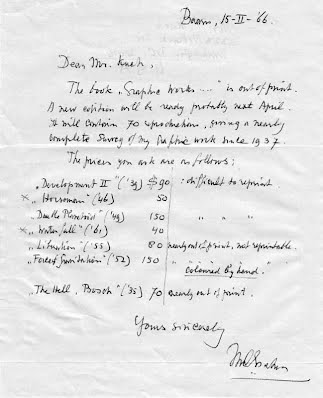 Baarn, 15-II-'66.
Dear Mr.
The book "Graphic Works ....." is out of print.
A new edition will be ready probably next April.
It will contain 70 reproductions, giving a nearly
complete survey of my graphic work since 1937.
The prices you ask are as follows:
"Development II" ('39) $ 90 : difficult to reprint.
x "Horseman" ('46) 50
"Double Planetoid" ('49) 150 " "
x "Waterfall" ('61) 40
"Liberation" ('55) 80 nearly out of print, not reprintable.
"Four Gravitation" ('52) 150 " "
"coloured by hand."
"The Hell, Bosch" ('35) 70 nearly out of print.
Yours sincerely
MCEscher